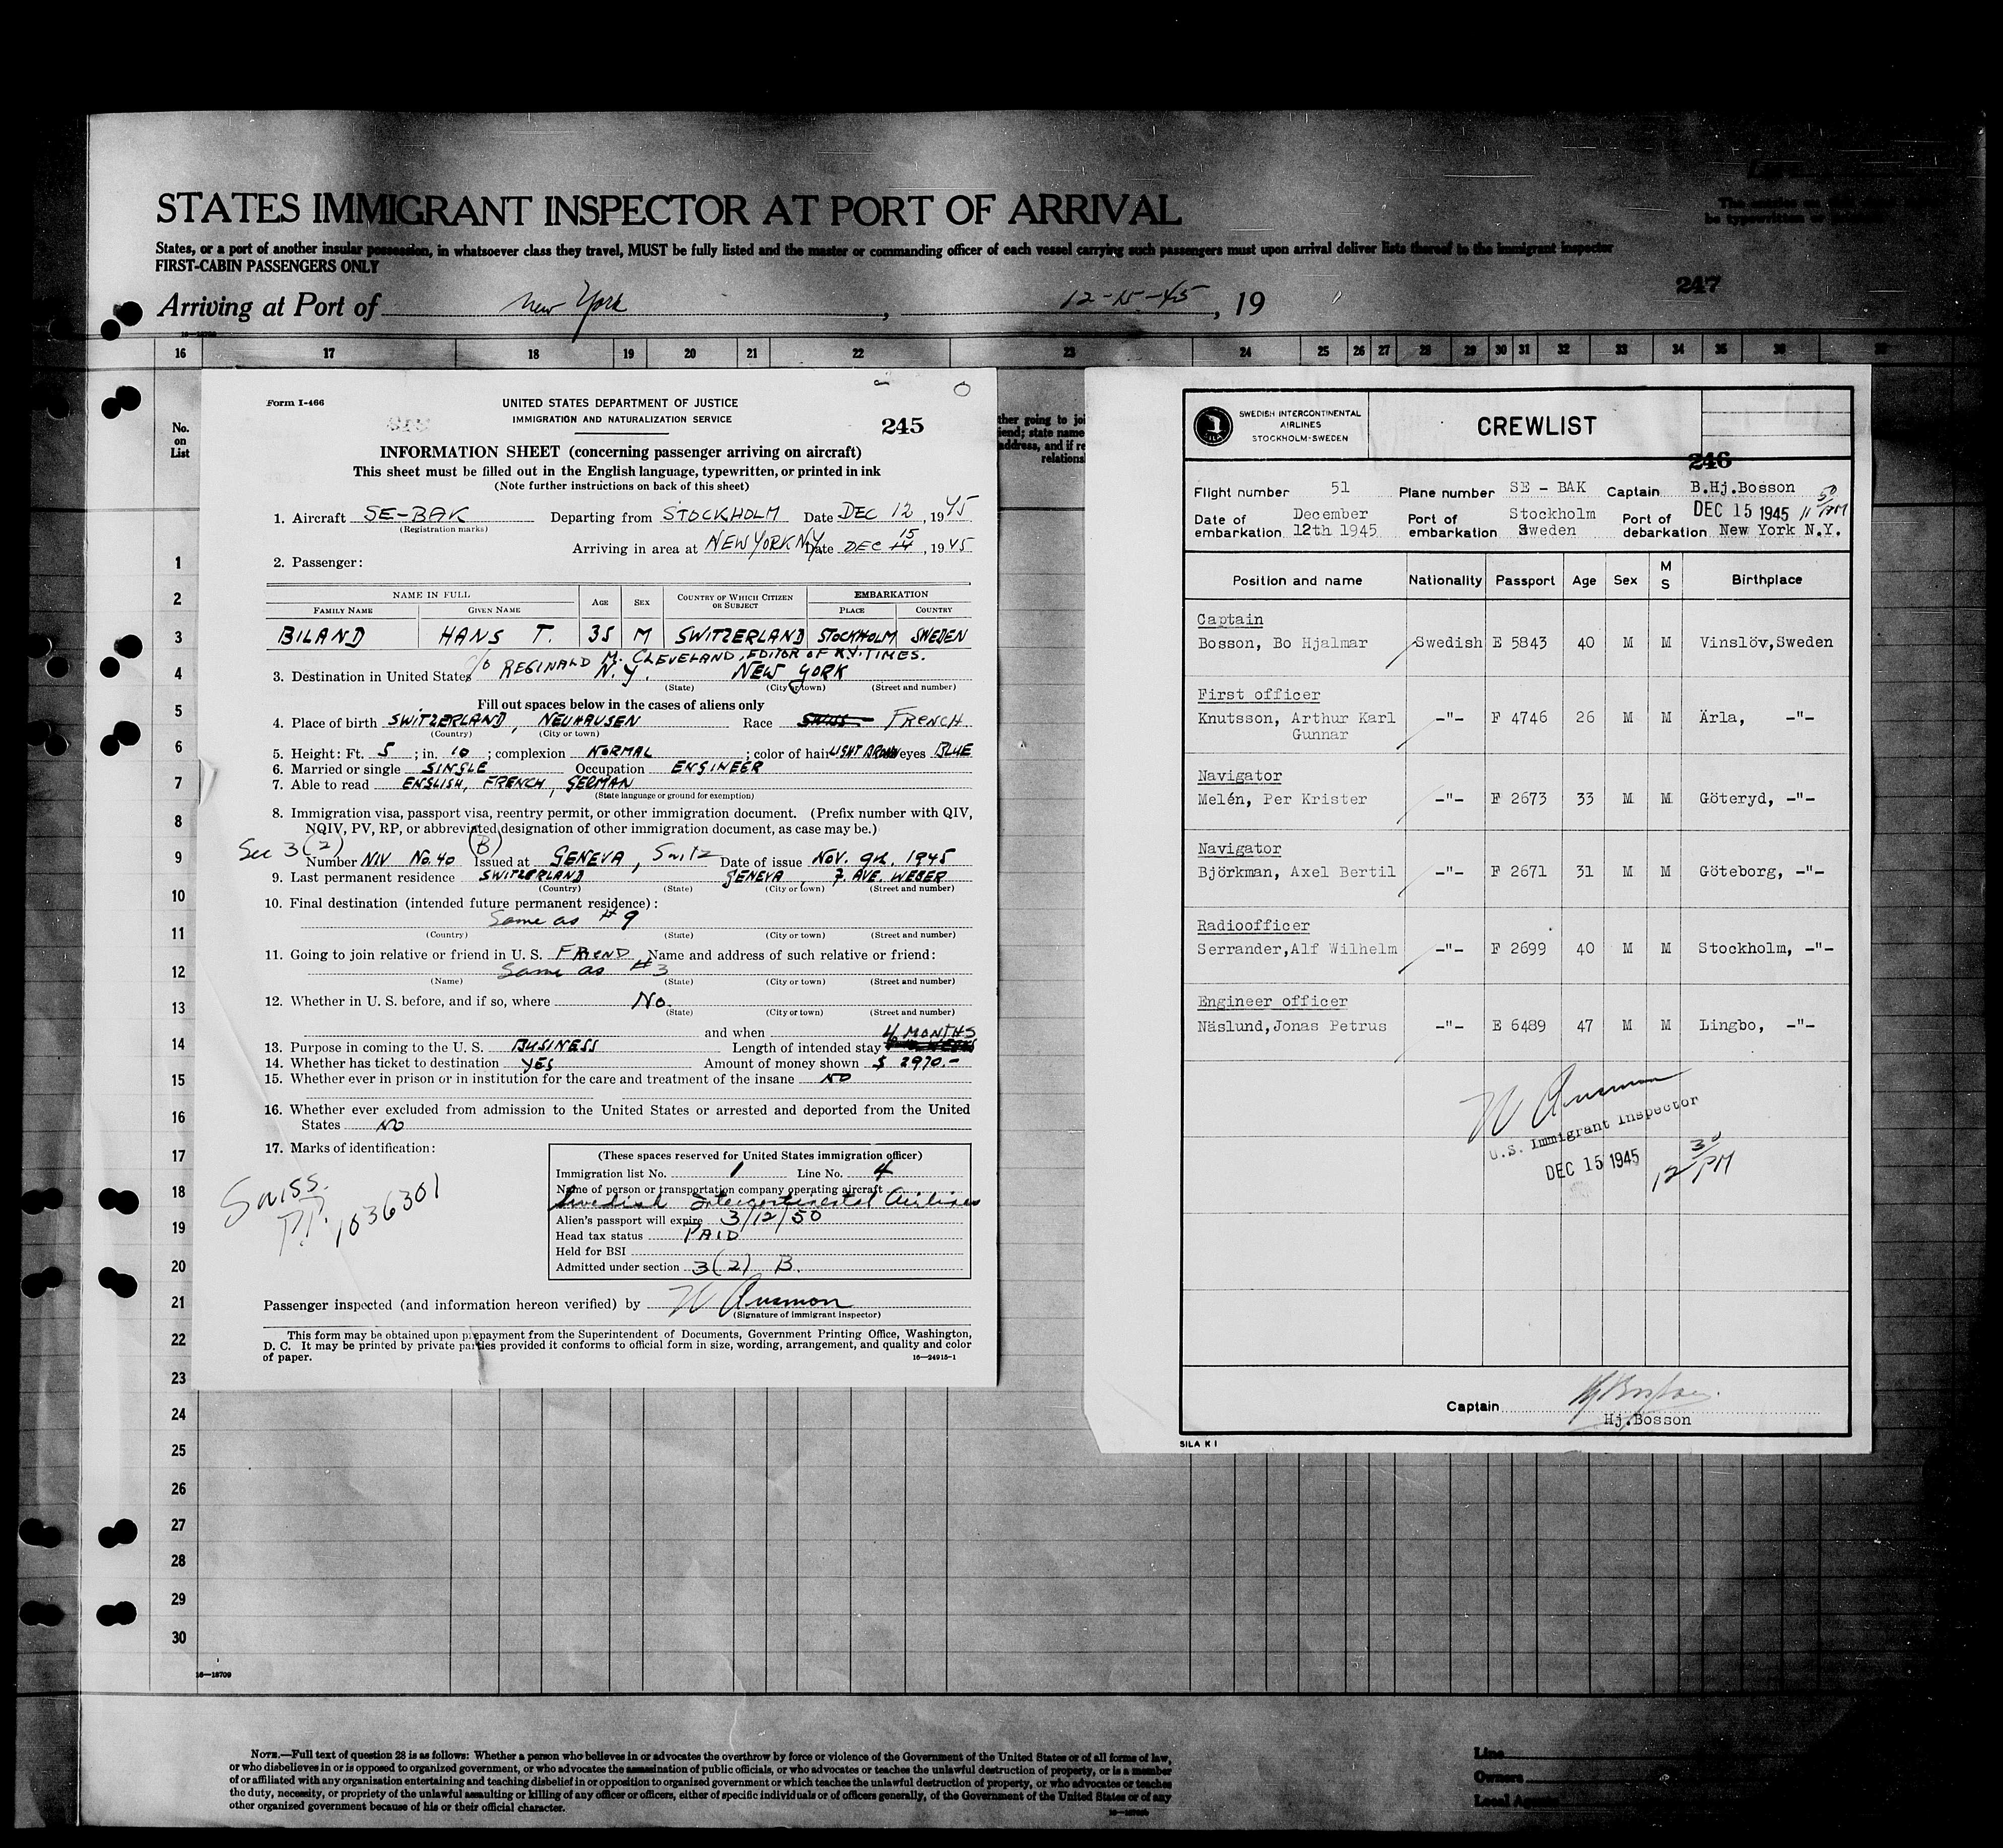 STATES IMMIGRANT INSPECTOR AT PORT OF ARRIVAL
States, or a port of another insular possession, in whatsoever class they travel, MUST be fully listed and the master or commanding officer of each vessel carrying such passengers must upon arrival deliver lists thereof to the immigrant inspector
FIRST-CABIN PASSENGERS ONLY
The entries on
be typewritten or
247
Arriving at Port of New York, 12-15-45, 19
16 17 18 19 20 21 22 23 24 25 26 27 28 29 30 31 32 33 34 35 36
No.
on
List
1
2
3
4
5
6
7
8
9
10
11
12
13
14
15
16
17
18
19
20
21
22
23
24
25
26
27
28
29
30
16—18709
ther going to joi
iend; state name
address, and if re
relations
Form I-466
UNITED STATES DEPARTMENT OF JUSTICE
IMMIGRATION AND NATURALIZATION SERVICE
245
INFORMATION SHEET (concerning passenger arriving on aircraft)
This sheet must be filled out in the English language, typewritten, or printed in ink
(Note further instructions on back of this sheet)
1. Aircraft SE-BAK Departing from STOCKHOLM Date DEC 12, 1945
(Registration marks)
Arriving in area at NEW YORK NY Date DEC 14 15, 1945
2. Passenger:
NAME IN FULL AGE SEX COUNTRY OF WHICH CITIZEN OR SUBJECT EMBARKATION
FAMILY NAME GIVEN NAME PLACE COUNTRY
BILAND HANS T. 35 M SWITZERLAND STOCKHOLM SWEDEN
c/o REGINALD M. CLEVELAND, EDITOR OF N.Y. TIMES.
3. Destination in United States N.Y. NEW YORK
(State) (City or town) (Street and number)
Fill out spaces below in the cases of aliens only
4. Place of birth SWITZERLAND, NEUHAUSEN Race SWISS FRENCH
(Country) (City or town)
5. Height: Ft. 5; in. 10; complexion NORMAL; color of hair LIGHT BROWN eyes BLUE
6. Married or single SINGLE Occupation ENGINEER
7. Able to read ENGLISH, FRENCH, GERMAN
(State language or ground for exemption)
8. Immigration visa, passport visa, reentry permit, or other immigration document. (Prefix number with QIV,
NQIV, PV, RP, or abbreviated designation of other immigration document, as case may be.)
Sec 3(2) (B)
Number NIV No. 40 Issued at GENEVA, Switz Date of issue NOV. 9th. 1945
9. Last permanent residence SWITZERLAND GENEVA, 7. AVE. WEBER
(Country) (State) (City or town) (Street and number)
10. Final destination (intended future permanent residence):
Same as #9
(Country) (State) (City or town) (Street and number)
11. Going to join relative or friend in U. S. FRIEND Name and address of such relative or friend:
Same as #3
(Name) (State) (City or town) (Street and number)
12. Whether in U. S. before, and if so, where No.
(State) (City or town) (Street and number)
and when
4 MONTHS
13. Purpose in coming to the U. S. BUSINESS Length of intended stay
14. Whether has ticket to destination YES Amount of money shown $ 2970.-
15. Whether ever in prison or in institution for the care and treatment of the insane NO
16. Whether ever excluded from admission to the United States or arrested and deported from the United
States NO
17. Marks of identification:
Swiss.
P.P. 1036301
(These spaces reserved for United States immigration officer)
Immigration list No. 1 Line No. 4
Name of person or transportation company operating aircraft
Swedish Intercontinental Airlines
Alien's passport will expire 3/12/50
Head tax status PAID
Held for BSI
Admitted under section 3(2) B.
Passenger inspected (and information hereon verified) by W Ausmon
(Signature of immigrant inspector)
This form may be obtained upon prepayment from the Superintendent of Documents, Government Printing Office, Washington,
D. C. It may be printed by private parties provided it conforms to official form in size, wording, arrangement, and quality and color
of paper.
16—24915-1
SWEDISH INTERCONTINENTAL
AIRLINES
STOCKHOLM-SWEDEN
CREWLIST
246
Flight number 51 Plane number SE - BAK Captain B.Hj.Bosson
DEC 15 1945 11 50 PM
Date of embarkation December 12th 1945 Port of embarkation Stockholm Sweden Port of debarkation New York N.Y.
Position and name Nationality Passport Age Sex M S Birthplace
Captain
Bosson, Bo Hjalmar Swedish E 5843 40 M M Vinslöv,Sweden
First officer
Knutsson, Arthur Karl Gunnar -"- F 4746 26 M M Ärla, -"-
Navigator
Melén, Per Krister -"- F 2673 33 M M Göteryd, -"-
Navigator
Björkman, Axel Bertil -"- F 2671 31 M M Göteborg, -"-
Radioofficer
Serrander,Alf Wilhelm -"- F 2699 40 M M Stockholm, -"-
Engineer officer
Näslund,Jonas Petrus -"- E 6489 47 M M Lingbo, -"-
W Ausmon
U.S. Immigrant Inspector
DEC 15 1945 12 30 PM
Captain Hj Bosson
Hj.Bosson
SILA K 1
NOTE.—Full text of question 28 is as follows: Whether a person who believes in or advocates the overthrow by force or violence of the Government of the United States or of all forms of law,
or who disbelieves in or is opposed to organized government, or who advocates the assassination of public officials, or who advocates or teaches the unlawful destruction of property, or is a member
of or affiliated with any organization entertaining and teaching disbelief in or opposition to organized government or which teaches the unlawful destruction of property, or who advocates or teaches
the duty, necessity, or propriety of the unlawful assaulting or killing of any officer or officers, either of specific individuals or of officers generally, of the Government of the United States or of any
other organized government because of his or their official character.
Line
Owners
Local Agents